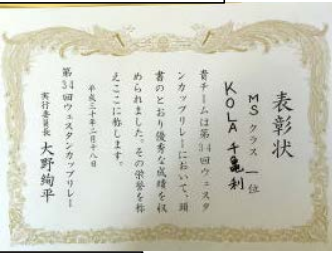 表彰状
MSクラス 一位
KOLA千亀利
貴チームは第34回ウェスタ
ンカップリレーにおいて、頭
書のとおり優秀な成績を収
められました。その栄誉を称
えここに称します。
平成三十年二月十八日
第34回ウェスタンカップリレー
実行委員長 大野絢平